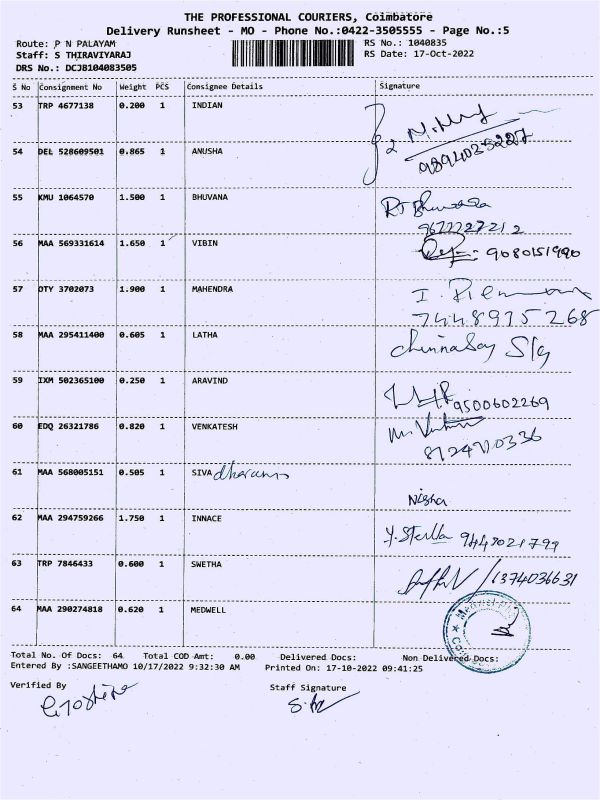 THE PROFESSIONAL COURIERS, Coimbatore
Delivery Runsheet - MO - Phone No.:0422-3505555 - Page No.:5
Route: P N PALAYAM RS No.: 1040835
Staff: S THIRAVIYARAJ RS Date: 17-Oct-2022
DRS No.: DCJB104083505
S No Consignment No Weight PCS Consignee Details Signature
53 TRP 4677138 0.200 1 INDIAN
54 DEL 528609501 0.865 1 ANUSHA
55 KMU 1064570 1.500 1 BHUVANA
9677227212
56 MAA 569331614 1.650 1 VIBIN 9080151990
57 OTY 3702073 1.900 1 MAHENDRA
7448975268
58 MAA 295411400 0.605 1 LATHA
59 IXM 502365100 0.250 1 ARAVIND 9500602269
60 EDQ 26321786 0.820 1 VENKATESH
61 MAA 568005151 0.505 1 SIVA
Nisha
62 MAA 294759266 1.750 1 INNACE
Y. Stella 9443021799
63 TRP 7846433 0.600 1 SWETHA
1374036631
64 MAA 290274818 0.620 1 MEDWELL
Total No. Of Docs: 64 Total COD Amt: 0.00 Delivered Docs: Non Delivered Docs:
Entered By :SANGEETHAMO 10/17/2022 9:32:30 AM Printed On: 17-10-2022 09:41:25
Verified By Staff Signature